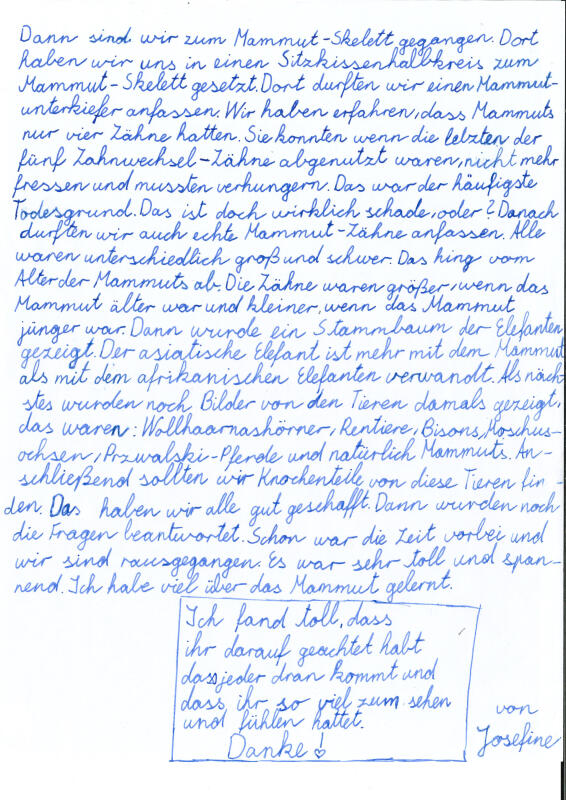 Dann sind wir zum Mammut-Skelett gegangen. Dort
haben wir uns in einen Sitzkissenhalbkreis zum
Mammut-Skelett gesetzt. Dort durften wir einen Mammut-
unterkiefer anfassen. Wir haben erfahren, dass Mammuts
nur vier Zähne hatten. Sie konnten wenn die letzten der
fünf Zahnwechsel-Zähne abgenutzt waren, nicht mehr
fressen und mussten verhungern. Das war der häufigste
Todesgrund. Das ist doch wirklich schade, oder? Danach
durften wir auch echte Mammut-Zähne anfassen. Alle
waren unterschiedlich groß und schwer. Das hing vom
Alter der Mammuts ab. Die Zähne waren größer, wenn das
Mammut älter war und kleiner, wenn das Mammut
jünger war. Dann wurde ein Stammbaum der Elefanten
gezeigt. Der asiatische Elefant ist mehr mit dem Mammut
als mit dem afrikanischen Elefanten verwandt. Als näch-
stes wurden noch Bilder von den Tieren damals gezeigt,
das waren: Wollhaarnashörner, Rentiere, Bisons, Moschus-
ochsen, Przwalski-Pferde und natürlich Mammuts. An-
schließend sollten wir Knochenteile von diese Tieren fin-
den. Das haben wir alle gut geschafft. Dann wurden noch
die Fragen beantwortet. Schon war die Zeit vorbei und
wir sind rausgegangen. Es war sehr toll und span-
nend. Ich habe viel über das Mammut gelernt.
Ich fand toll, dass
ihr darauf geachtet habt
dass jeder dran kommt und
dass ihr so viel zum sehen
und fühlen hattet.
Danke!
von
Josefine